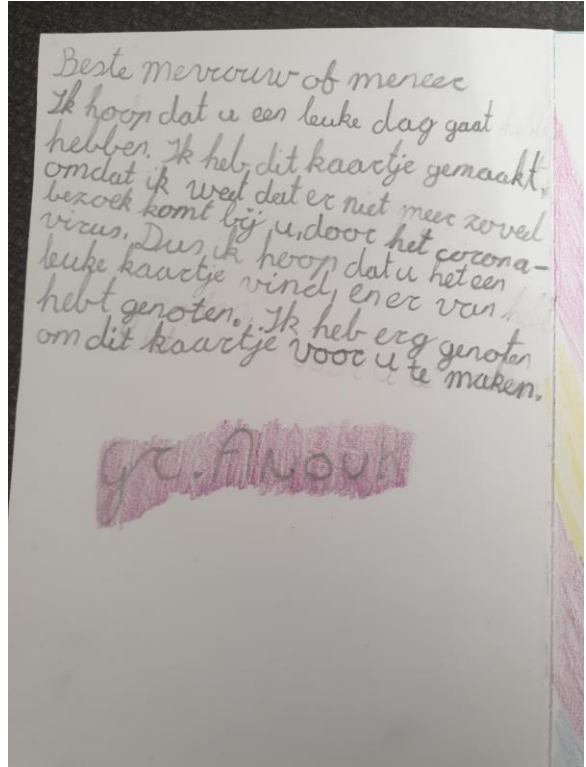 Beste mevrouw of meneer
Ik hoop dat u een leuke dag gaat
hebben. Ik heb dit kaartje gemaakt,
omdat ik weet dat er niet meer zoveel
bezoek komt bij u, door het corona-
virus. Dus ik hoop dat u het een
leuke kaartje vind, en er van
hebt genoten. Ik heb erg genoten
om dit kaartje voor u te maken.
gr. Anouk